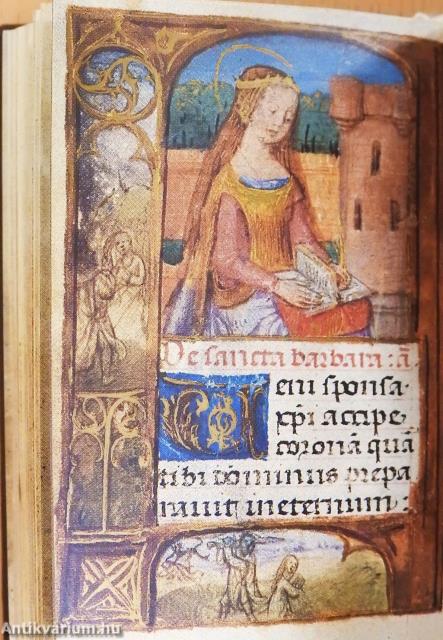 De sancta barbara : ā
Veni sponsa
xp̄i accipe
coronā quā
tibi dominus prepa
rauit in eternum :
Antikvárium.hu